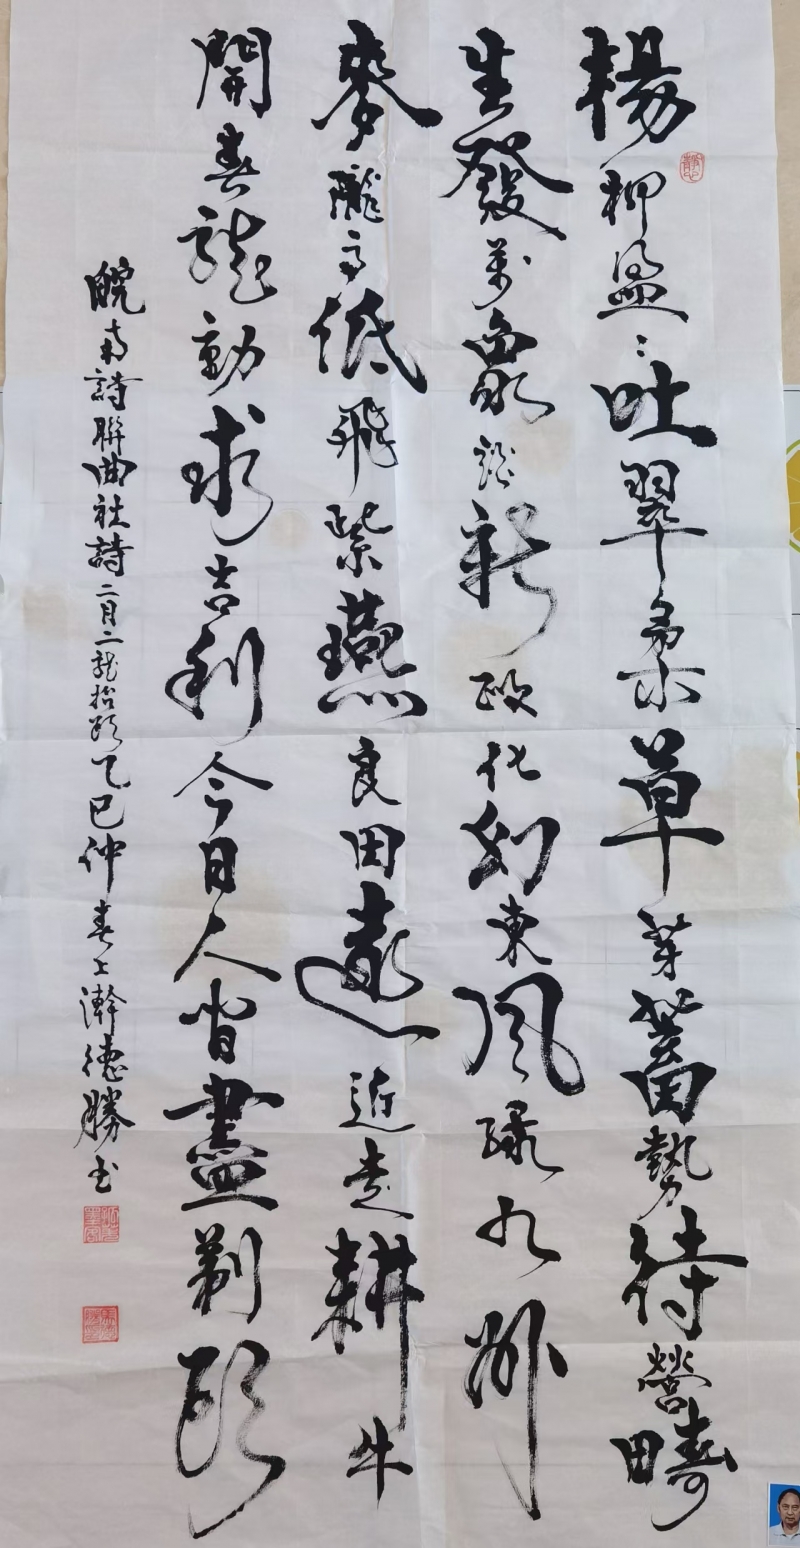 楊柳盈盈吐翠柔草芽蓄勢待營疇
生發萬象新政化幻東風綠九州
麥隴高低飛紫燕良田遠近走耕牛
開春龍動求吉利今日人皆盡剃頭
皖南詩聯曲社詩二月二龍抬頭乙巳仲春上澣德勝书